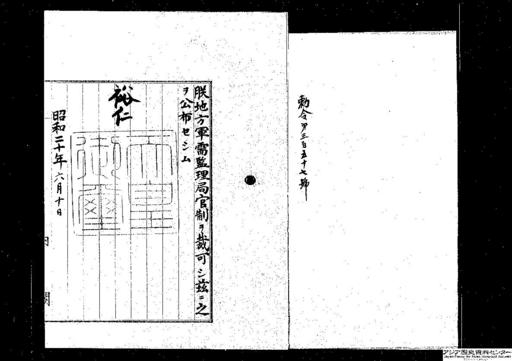 勅令第三百五十七號
朕地方軍需監理局官制ヲ裁可シ茲ニ之
ヲ公布セシム
裕仁
天皇
御璽
昭和二十年六月十日
内閣
アジア歴史資料センター
Japan Center for Asian Historical Records